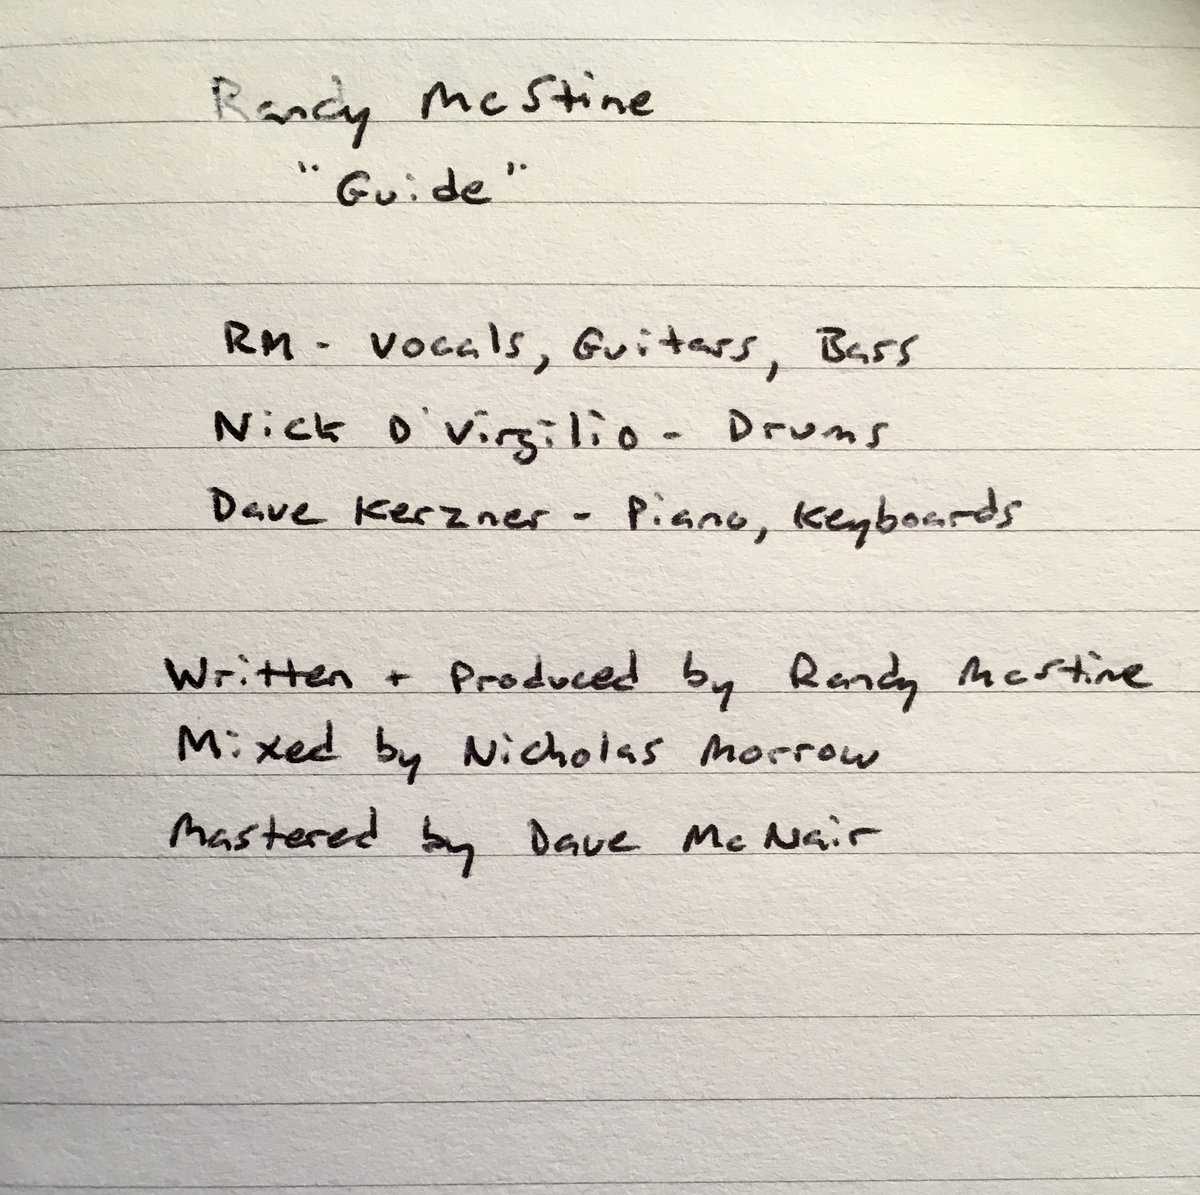 Randy McStine
"Guide"
RM - Vocals, Guitars, Bass
Nick D'Virgilio - Drums
Dave Kerzner - Piano, Keyboards
Written + Produced by Randy McStine
Mixed by Nicholas Morrow
Mastered by Dave McNair